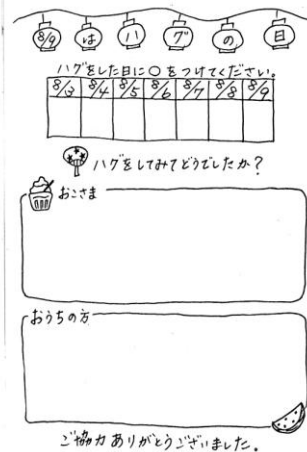 8/9はハグの日
ハグをした日に○をつけてください。
8/3 8/4 8/5 8/6 8/7 8/8 8/9
ハグをしてみてどうでしたか?
おこさま
おうちの方
ご協力ありがとうございました。